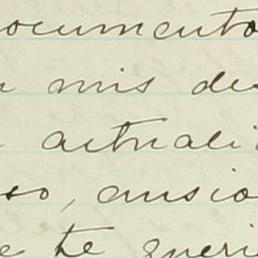 ocumento
mis de
actuali
so, ansio
e te queri